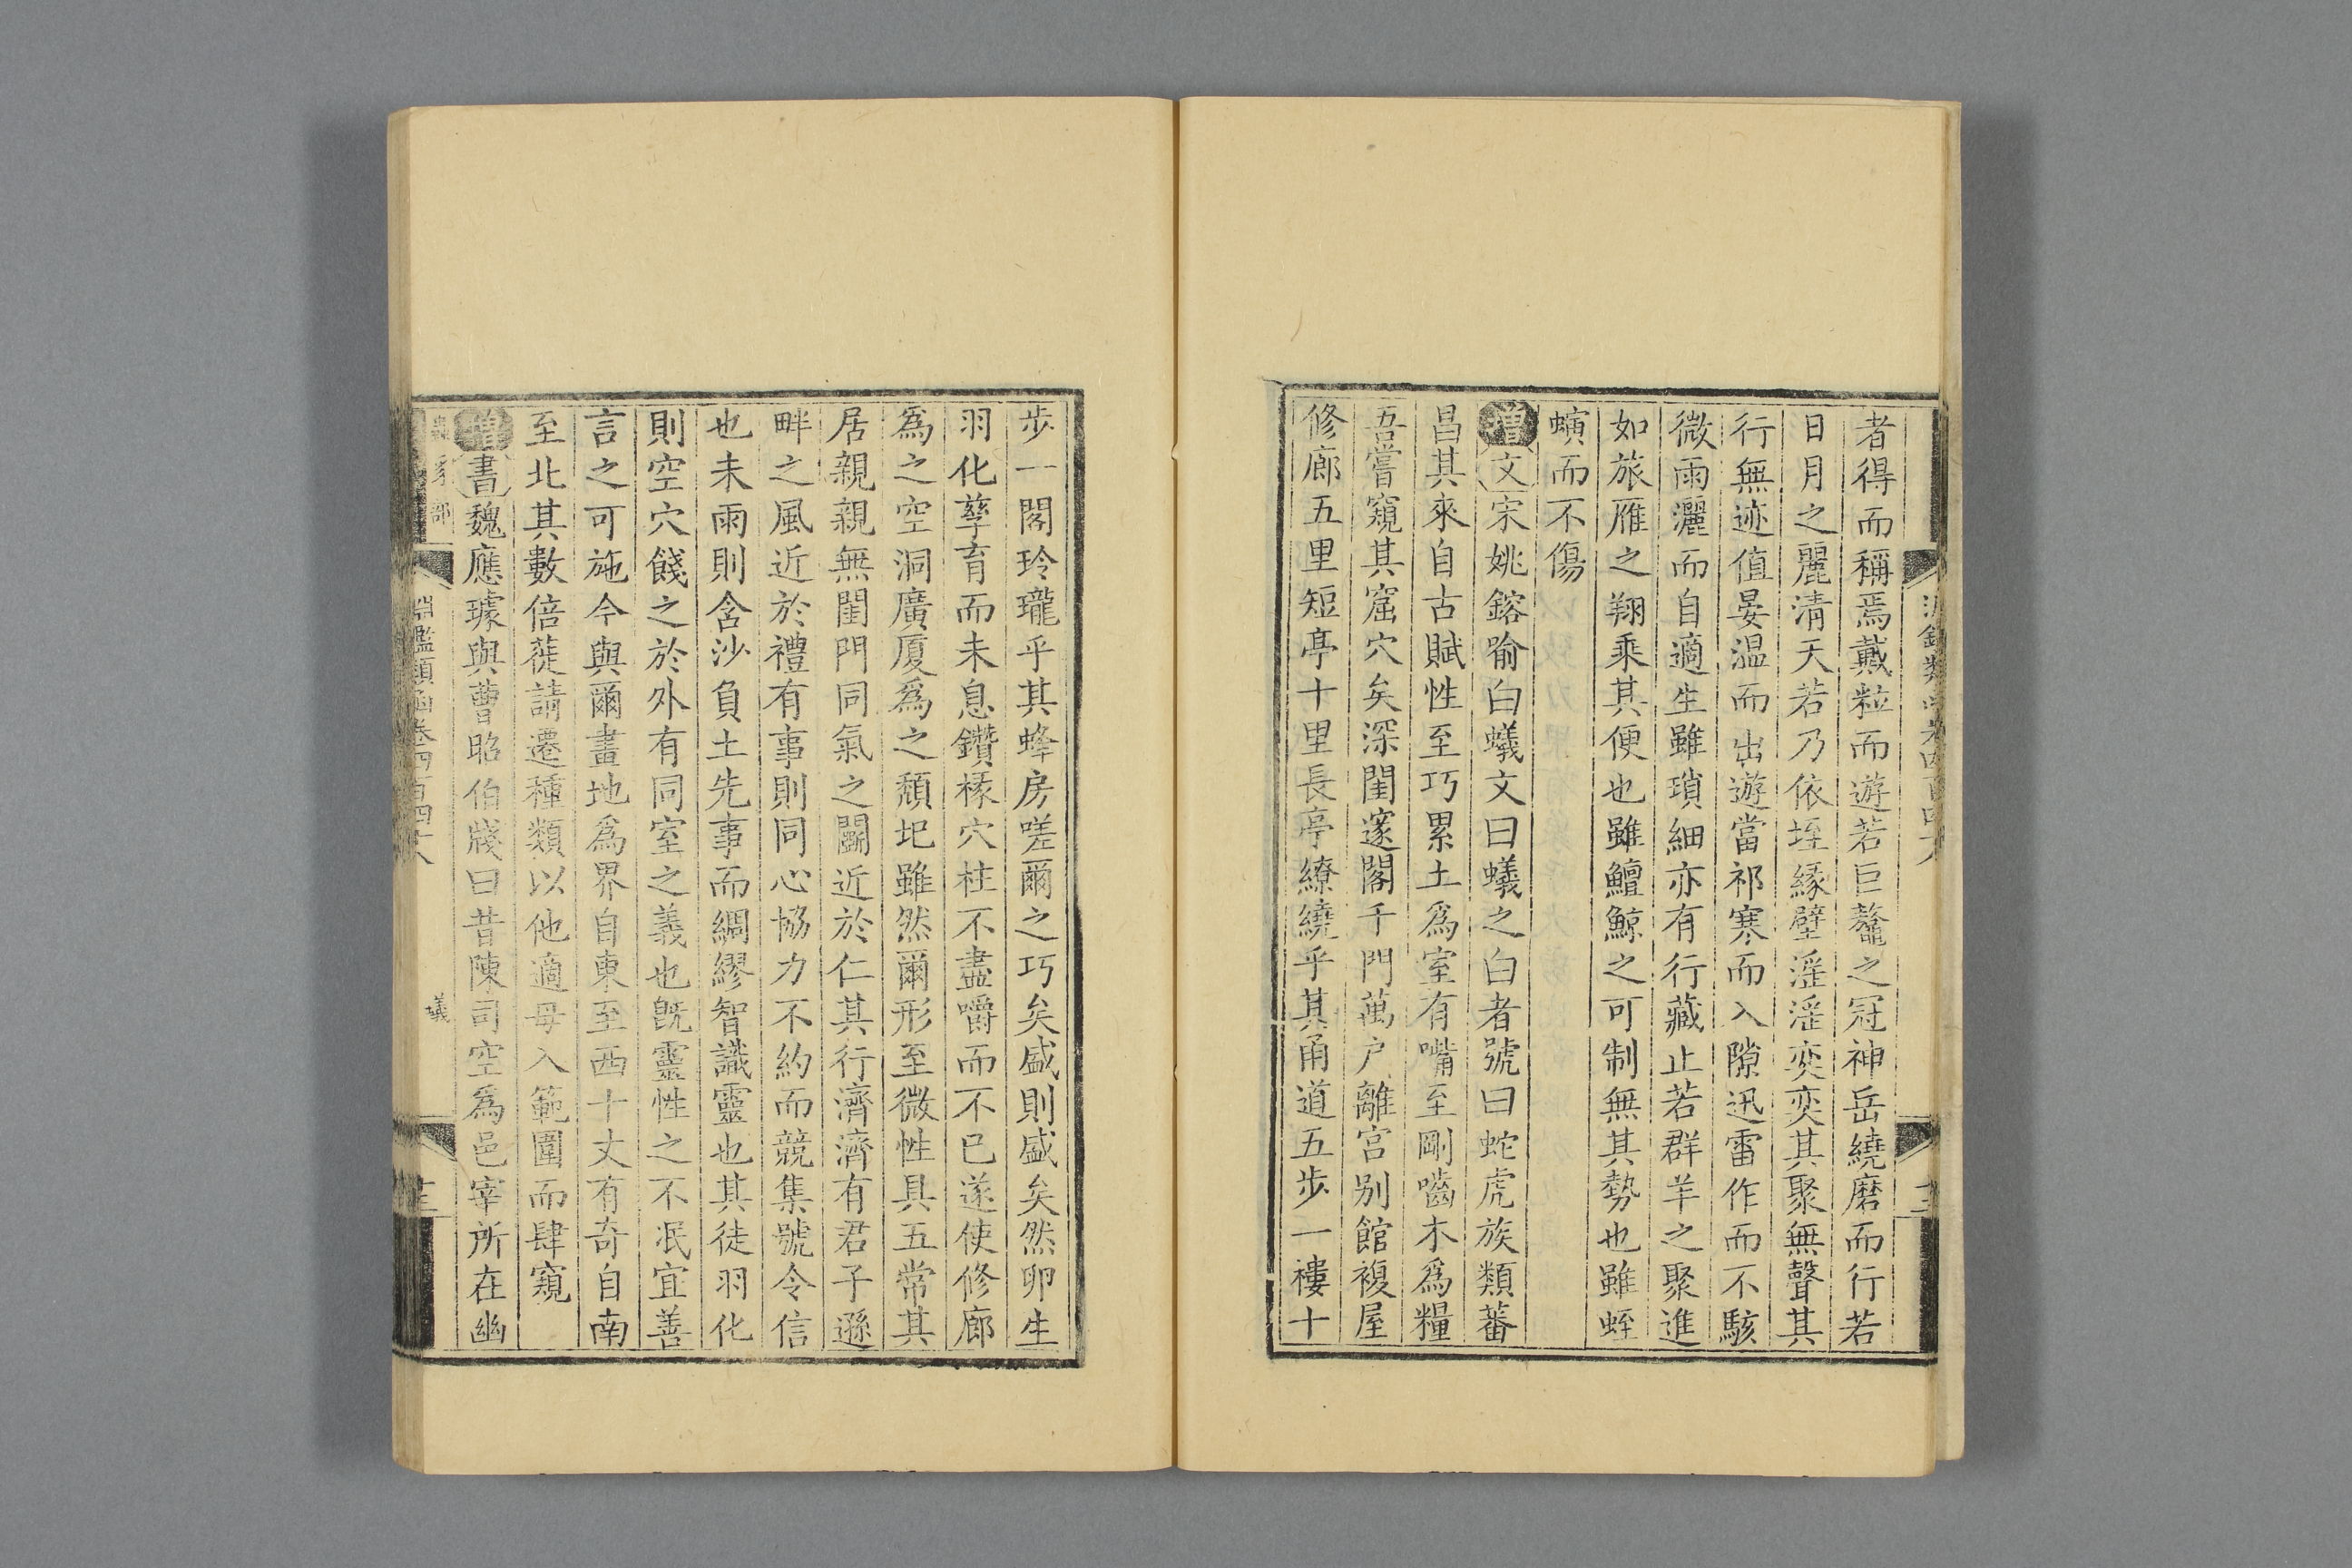 者得而稱焉戴粒而遊若巨鼇之冠神岳繞磨而行若
日月之麗清天若乃依垤緣壁淫淫奕奕其聚無聲其
行無迹值晏溫而出遊當祁寒而入隙迅雷作而不駭
微雨灑而自適生雖瑣細亦有行藏止若群羊之聚進
如旅雁之翔乘其便也雖鱣鯨之可制無其勢也雖蛭
螾而不傷
增文宋姚鎔喻白蟻文曰蟻之白者號曰蛇虎族類蕃
昌其來自古賦性至巧累土爲室有嘴至剛嚙木爲糧
吾嘗窺其窟穴矣深閨邃閣千門萬户離宫别館複屋
修廊五里短亭十里長亭繚繞乎其甬道五步一褸十
步一閣玲瓏乎其蜂房嗟爾之巧矣盛則盛矣然卵生
羽化孳育而未息鑽椽穴柱不盡嚼而不已遂使修廊
爲之空洞廣厦爲之頹圯雖然爾形至微性具五常其
居親親無閨門同氣之鬭近於仁其行濟濟有君子遜
畔之風近於禮有事則同心協力不約而競集號令信
也未雨則含沙負土先事而綢繆智識靈也其徒羽化
則空穴餞之於外有同室之義也旣靈性之不泯宜善
言之可施今與爾畫地爲界自東至西十丈有奇自南
至北其數倍蓰請遷種類以他適毋入範圍而肆窺
增書魏應璩與曹昭伯牋曰昔陳司空爲邑宰所在幽
淵鑑類函卷四百四十八
蟻